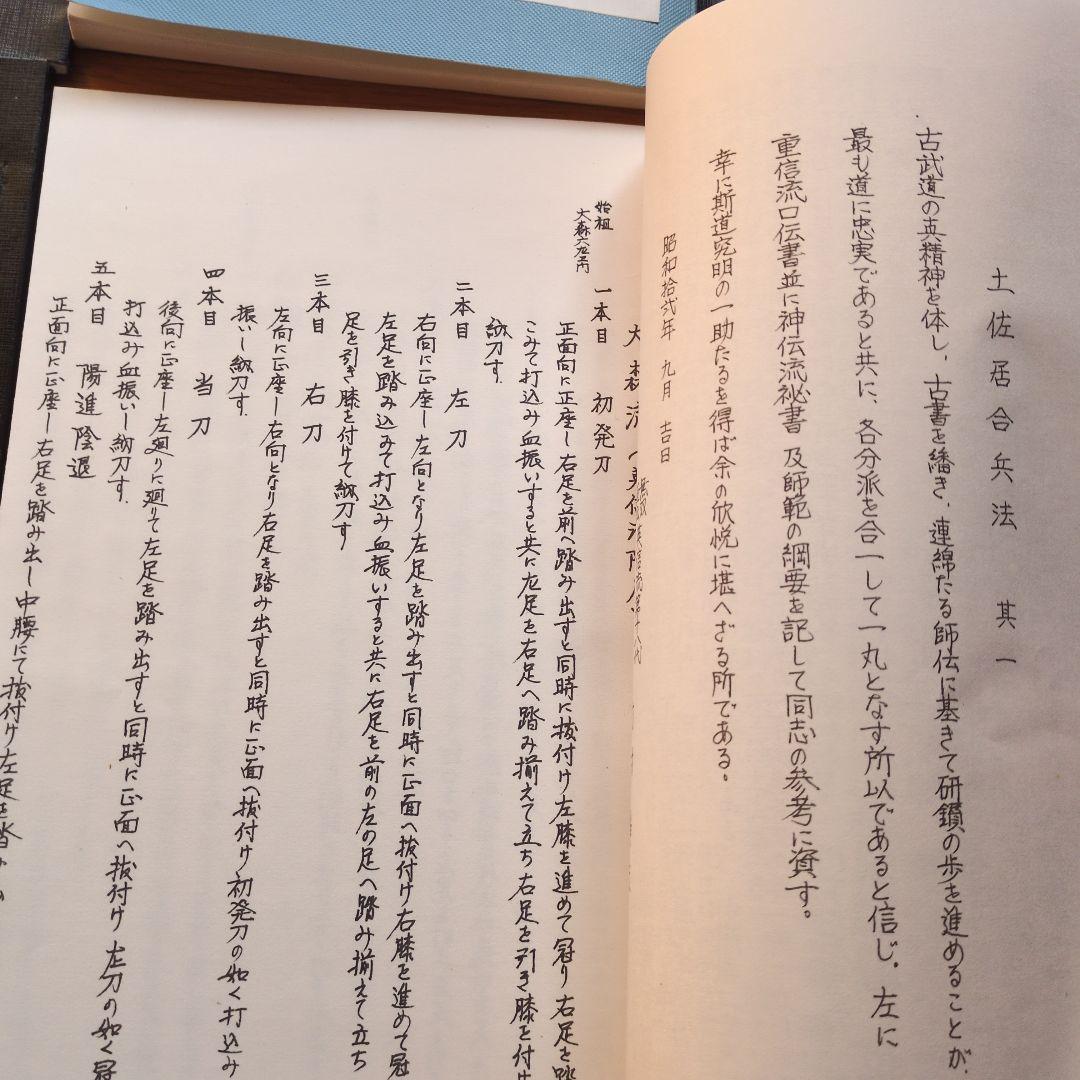 土佐居合兵法 其一
古武道の真精神を体し、古書を繙き、連綿たる師伝に基きて研鑽の歩を進めることが、
最も道に忠実であると共に、各分派を合一して一丸となす所以であると信じ、左に
重信流口伝書並に神伝流祕書 及師範の綱要を記して同志の参考に資す。
幸に斯道究明の一助たるを得ば余の欣悦に堪へざる所である。
昭和拾弐年 九月 吉日
大森流
始祖
大森六左ェ門
一本目 初発刀
正面向に正座し右足を前へ踏み出すと同時に抜付け左膝を進めて冠り右足を踏
こみて打込み血振いすると共に左足を右足へ踏み揃えて立ち右足を引き膝を付
納刀す。
二本目 左刀
右向に正座し左向となり左足を踏み出すと同時に正面へ抜付け右膝を進めて冠
左足を踏み込みて打込み血振いすると共に右足を前の左の足へ踏み揃えて立ち
足を引き膝を付けて納刀す
三本目 右刀
左向に正座し右向となり右足を踏み出すと同時に正面へ抜付け初発刀の如く打込み
振いし納刀す。
四本目 当刀
後向に正座し左廻りに廻りて左足を踏み出すと同時に正面へ抜付け左刀の如く冠
打込み血振いし納刀す。
五本目 陽進陰退
正面向に正座し右足を踏み出し中腰にて抜付け左足を踏み